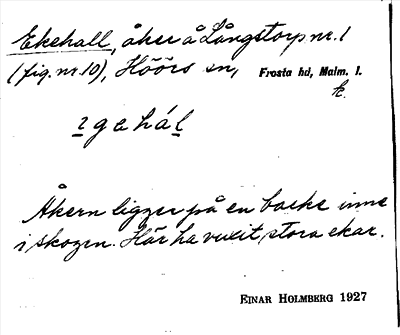 Ekehall, åker å Långstorp nr. 1
(fig. nr. 10), Höörs sn, Frosta hd, Malm. l.
k.
ga hál
Åkern ligger på en backe inne
i skogen. Här ha vuxit stora ekar.
EINAR HOLMBERG 1927